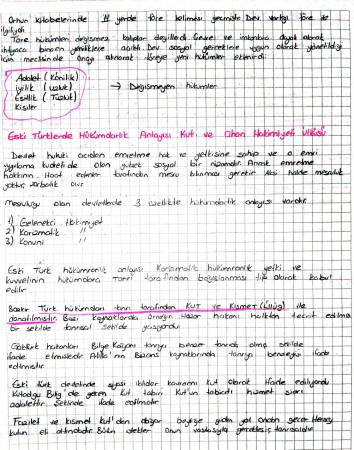 Orhun kitabelerinde 11 yerde töre kelimesi geçmiştir Dev. varlığı töre ile
ilgiliydi
Töre hükümleri değişmez kalıplar değillerdi Çevre ve imkanlara dayalı olarak
ihtiyaca binaen yeniliklere açıktı. Dev sosyal gereklere uygun olarak yönetildiği
için meclisinde onayı alınarak töreye yeni hükümler eklenirdi.
Adalet (Könilik)
iyilik (uzluk)
Eşitlik (Tüzlük)
Kişiler
→ Değişmeyen hükümler
Eski Türklerde Hükümdarlık Anlayışı Kut ve Cihan Hakimiyeti Ülküsü
Devlet hukuki açıdan emretme hak ve yetkisine sahip ve o emri
uygulama kudreti de olan yüksek sosyal bir nizamdır. Ancak emretme
hakkının itaat edenler tarafından meşru bilinmesi gerekir Aksi halde meşruluk
yoktur, zorbalık olur
Meşruluğu olan devletlerde 3 özellikte hükümdarlık anlayışı vardır.
1) Gelenekçi Hakimiyet
2) Karizmatik "
3) Kanuni "
Eski Türk hükümranlık anlayışı Karizmatik hükümranlık yetki ve
kuvvetinin hükümdara Tanrı tarafından bağışlanması olarak kabul
edilir
Türk hükümdarı tanrı tarafından KUT ve Kısmet (Ülüg) ile
donatılmıştır. Bazı kaynaklarda örneğin Hazar hakanı halktan tecrit edilmiş
bir şekilde tanrısal şekilde yaşıyordu
Göktürk hakanları Bilge Kağan tanrıya benzer tanrıda olmuş şekilde
ifade etmektedir Atilla'nın Bizans kaynaklarında tanrıya benzediği ifade
edilmiştir.
Eski Türk devletinde siyasi iktidar kavramı kut olarak ifade ediliyordu
Kutadgu Bilig'de geçen Kut tabiri Kut'un tabiatı hizmet şiarı
adalettir. Şeklinde ifade edilmiştir
Fazilet ve kısmet kut'dan doğar beyliğe giden yol ondan geçer Herşey
kutun eli altındadır Bütün istekler Onun vasıtasıyla gerçekleşir tanrısaldır